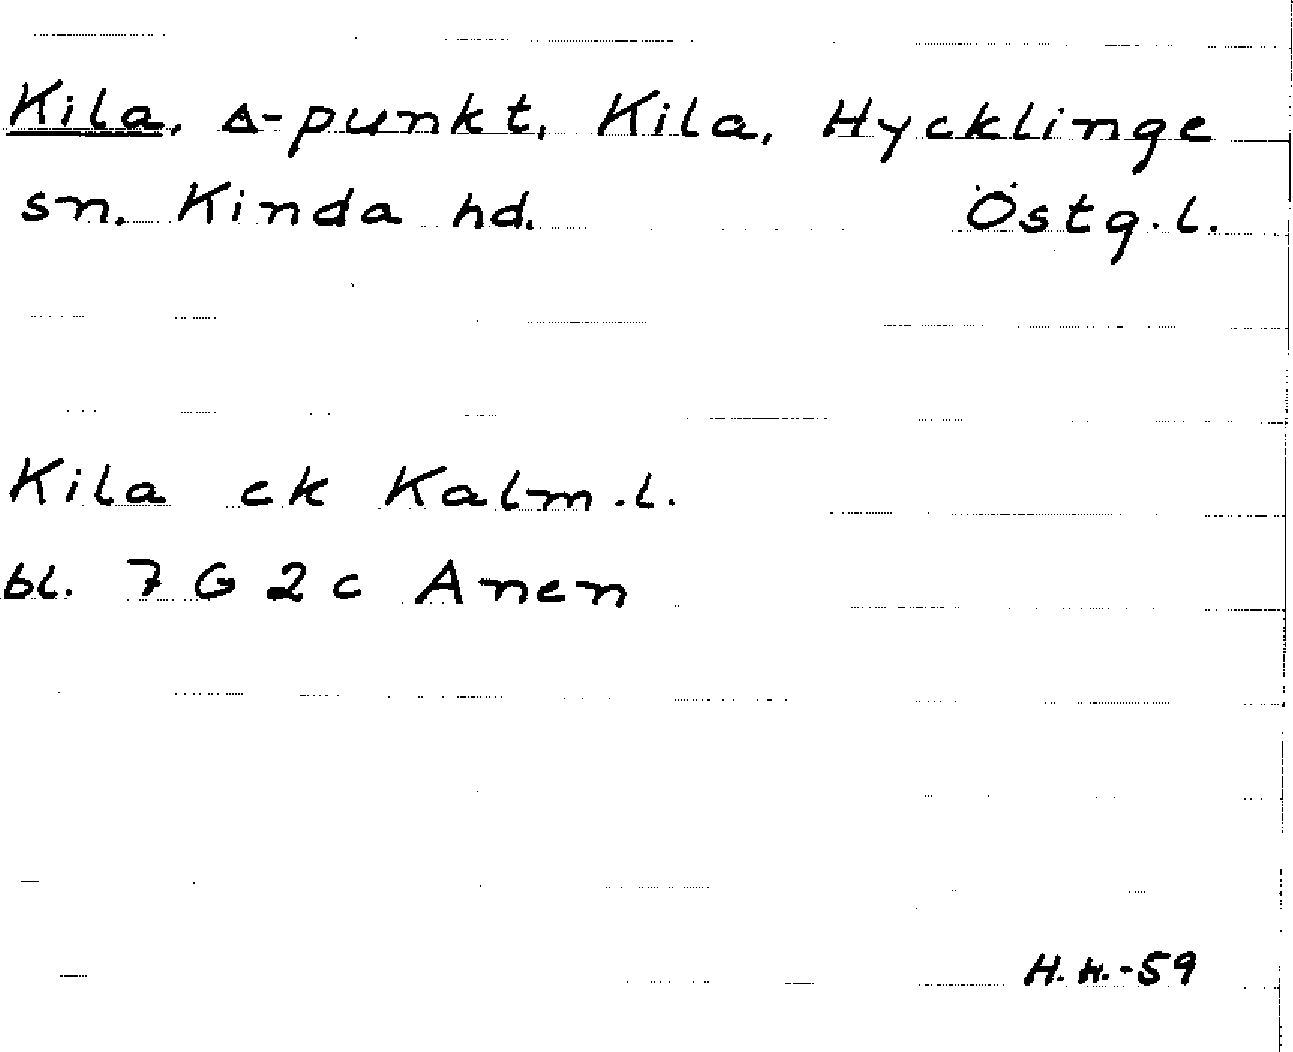 Kila, ∆-punkt, Kila, Hycklinge
sn. Kinda hd. Östg.l.
Kila ek Kalm.l.
bl. 7 G 2 c Anen
H.H.-59